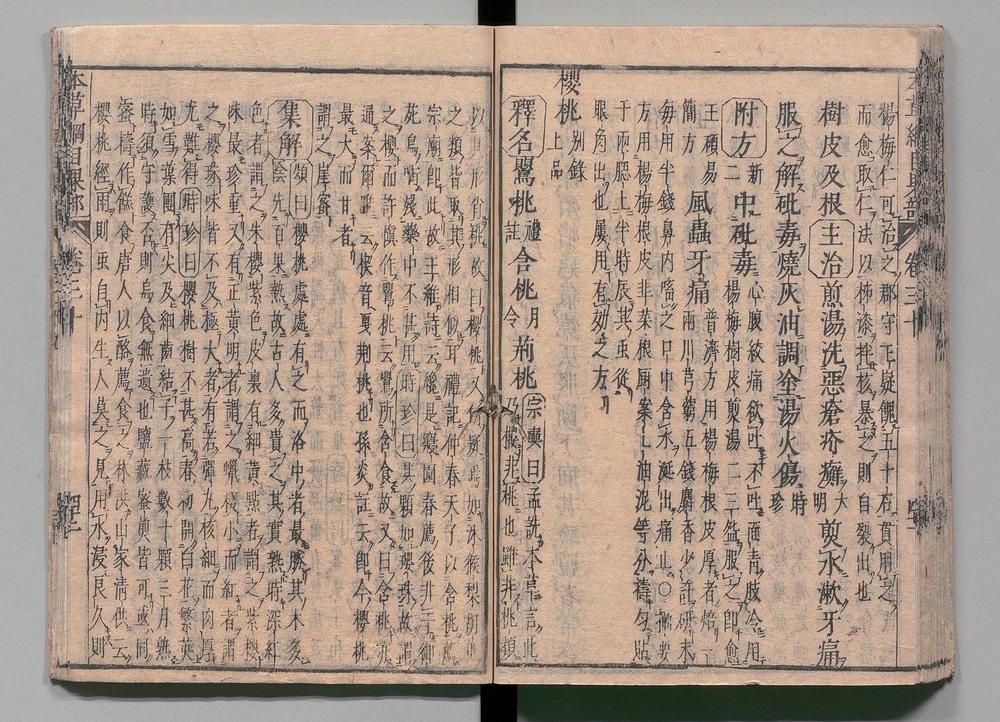 楊梅仁可治之郡守王疑餽五十石貫用之
而愈取仁法以柿漆拌核暴之則自裂出也
樹皮及根主治煎湯洗惡瘡疥癬大明煎水漱牙痛
服之解砒毒燒灰油調塗湯火傷時珍
附方新二中砒毒心腹絞痛欲吐不吐面青肢冷用楊梅樹皮煎湯二三盌服之即愈
王碩易簡方風蟲牙痛普濟方用楊梅根皮厚者焙一兩川芎藭五錢麝香少許研末
每用半錢鼻內㗜之口中含水涎出痛止○摘要
方用楊梅根皮韭菜根厨案上油泥等分擣勻貼
于兩腮上半時辰其虫從
眼角出也屢用有效之方
櫻桃別錄上品
釋名鸎桃禮註含桃月令荊桃宗奭曰孟詵本草言此乃櫻非桃也雖非桃類
以其形肖桃故曰櫻桃又何疑焉如沐猴梨胡桃
之類皆取其形相似耳禮記仲春天子以含桃薦
宗廟即此故王維詩云纔是寢園春薦後非干御
苑鳥啣殘藥中不甚用時珍曰其顆如瓔珠故謂
之櫻而許慎作鸎桃云鸎所含食故又曰含桃亦
通案爾雅云楔音戛荊桃也孫炎註云即今櫻桃
最大而甘者
謂之崖蜜
集解頌曰櫻桃處處有之而洛中者最勝其木多陰先百果熟故古人多貴之其實熟時深紅
色者謂之朱櫻紫色皮裏有細黃點者謂之紫櫻
味最珍重又有正黃明者謂之蠟櫻小而紅者謂
之櫻珠味皆不及極大者有若彈丸核細而肉厚
尤難得時珍曰櫻桃樹不甚高春初開白花繁英
如雪葉團有尖及細齒結子一枝數十顆三月熟
時須守護否則鳥食無遺也鹽藏蜜煎皆可或同
蜜擣作餻食唐人以酪薦食之林洪山家清供云
櫻桃經雨則虫自內生人莫之見用水浸良久則
本草綱目果部 卷三十